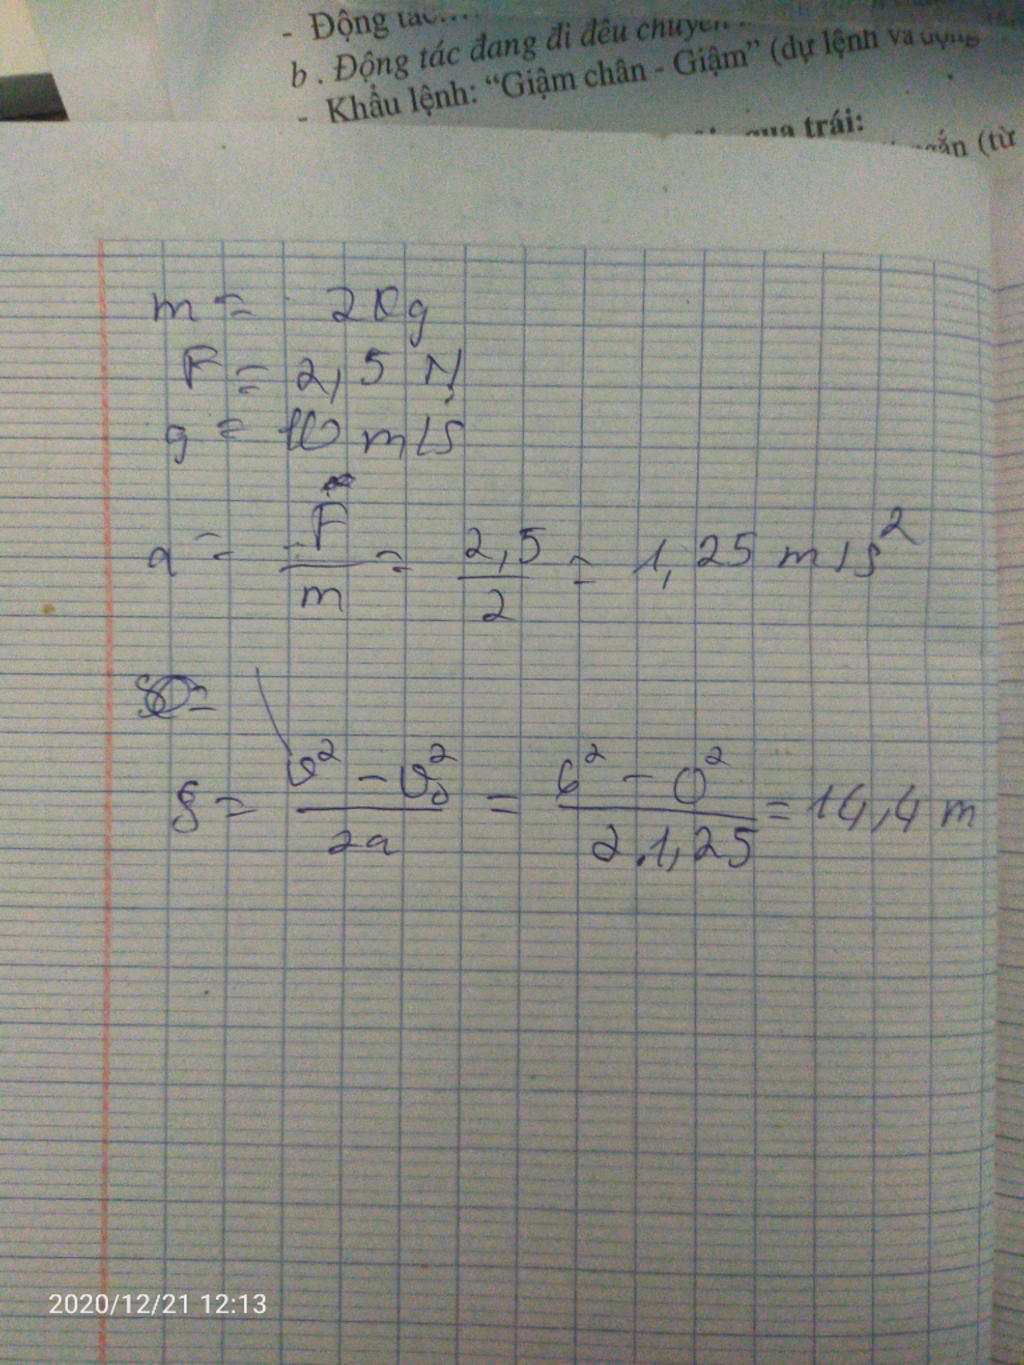 - Động tác....
b . Động tác đang đi đều chuyển
- Khẩu lệnh: “Giậm chân - Giậm” (dự lệnh và động
qua trái:
ngắn (từ
m = 20g
F = 2,5 N
g = 10 m/s
a = F/m = 2,5/2 = 1,25 m/s²
S = (v² - v₀²)/2a = (6² - 0²)/2.1,25 = 14,4 m
2020/12/21 12:13